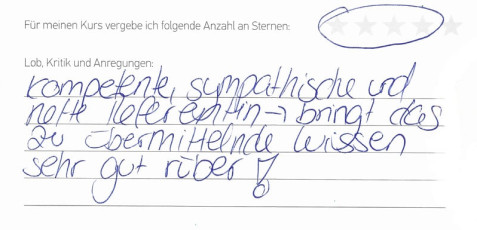 Für meinen Kurs vergebe ich folgende Anzahl an Sternen:
Lob, Kritik und Anregungen:
kompetente, sympathische und
nette Referentin → bringt das
zu übermittelnde Wissen
sehr gut rüber!